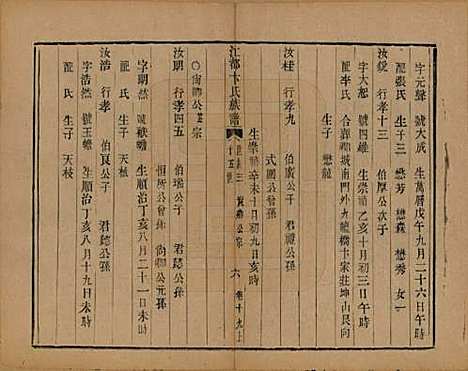 字元聲 號大成 生萬曆戊午九月二十六日午時
配張氏 生子三 懋芳 懋森 懋秀 女一
汝鋑 行孝十三 伯厚公次子
字大恕 號四維 生崇禎乙亥十月初三日午時
配岑氏 合 城南門外九龍橋卞家莊坤山艮向
生子 懋龍
汝桂 行孝九 伯 公子 君禮公孫
式圃公曾孫
生崇禎辛未十月初九日亥時
江都卞氏族譜 世表三 公宗 六 卷十九上
十五世
〇尙卿公 宗
汝明 行孝四五 伯璿公子 君鎴公孫
恒所公曾孫 尙卿公元孫
字期然 號猷瞻 生順治丁亥八月二十一日未時
配 氏 生子 天枝
汝浩 行孝 伯良公子 君鎴公孫
字浩然 號玉蟾 生順治丁亥八月十九日未時
配 氏 生子 天枝